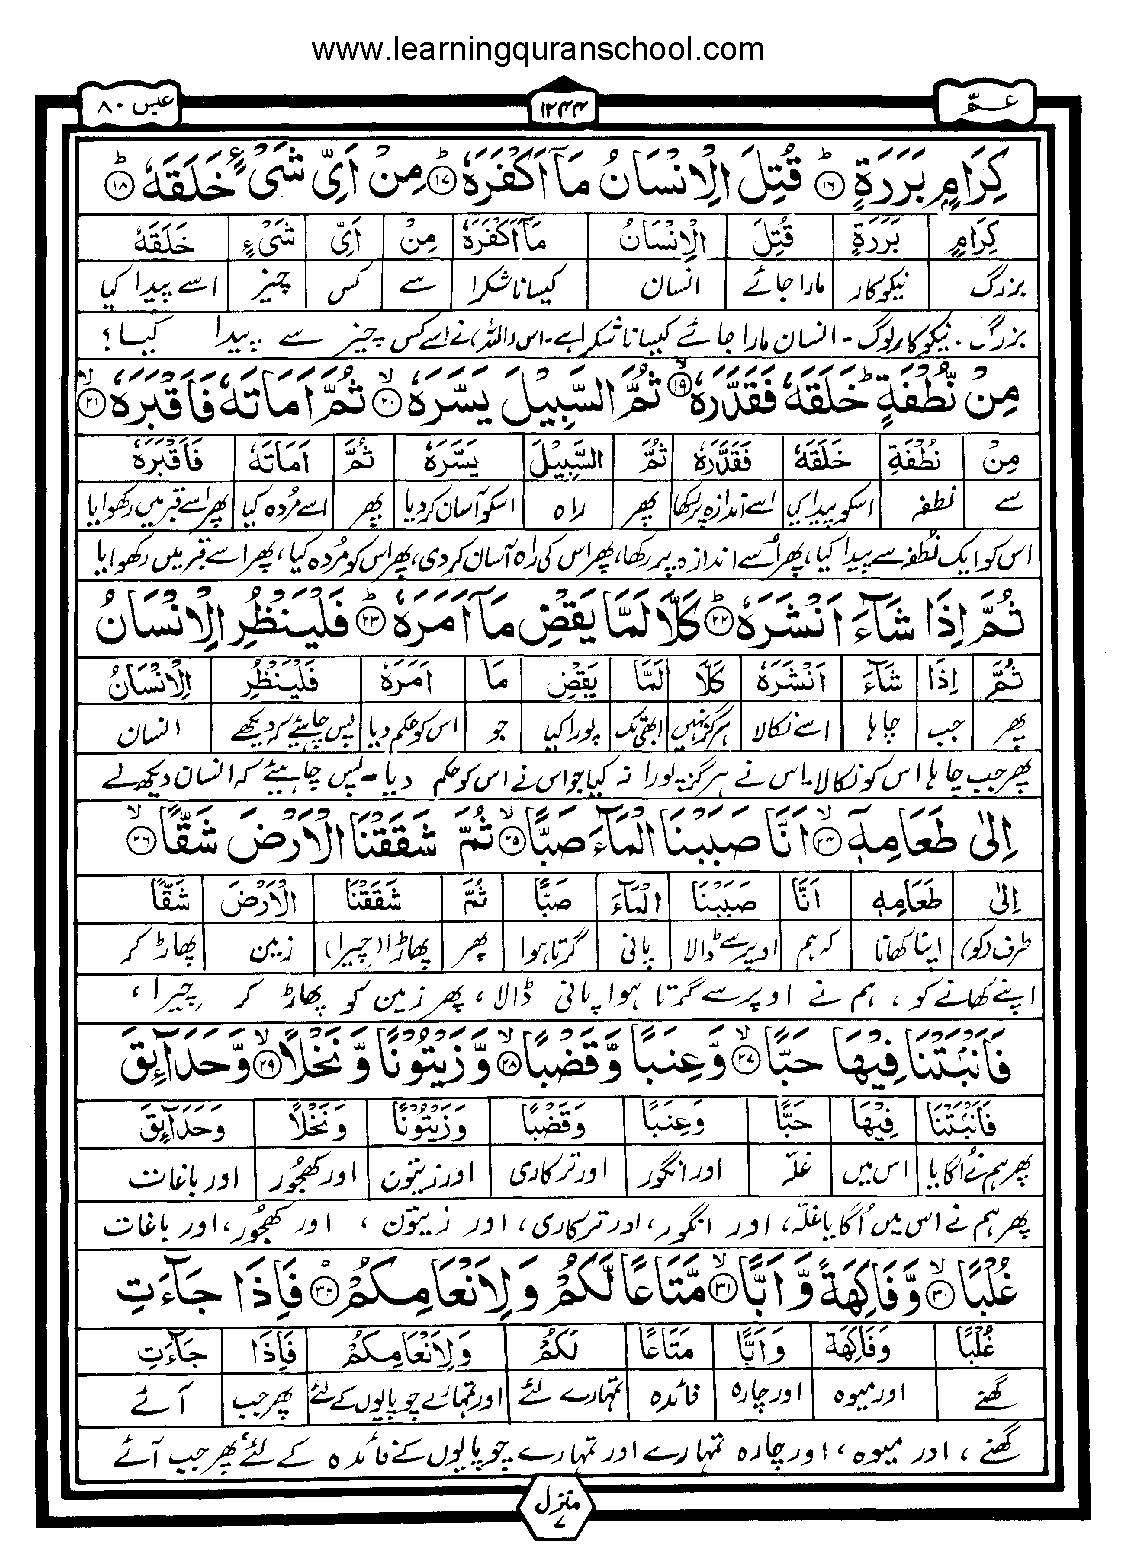 www.learningquranschool.com
عم ١٢٤٤ عبس ٨٠
كِرَامٍۭ بَرَرَةٍ ؕ﴿۱۶﴾ قُتِلَ الْاِنْسَانُ مَاۤ اَكْفَرَهٗ ؕ﴿۱۷﴾ مِنْ اَىِّ شَىْءٍ خَلَقَهٗ ؕ﴿۱۸﴾
كِرَامٍ بَرَرَةٍ قُتِلَ الْاِنْسَانُ مَاۤ اَكْفَرَهٗ مِنْ اَىِّ شَىْءٍ خَلَقَهٗ
بزرگ نیکوکار مارا جائے انسان کیسا ناشکرا سے کس چیز اسے پیدا کیا
بزرگ۔ نیکوکار لوگ۔ انسان مارا جائے کیسا ناشکرا ہے۔ اس (اللہ) نے اسے کس چیز سے پیدا کیا؟
مِنْ نُّطْفَةٍ ؕ خَلَقَهٗ فَقَدَّرَهٗ ۙ﴿۱۹﴾ ثُمَّ السَّبِيْلَ يَسَّرَهٗ ۙ﴿۲۰﴾ ثُمَّ اَمَاتَهٗ فَاَقْبَرَهٗ ۙ﴿۲۱﴾
مِنْ نُطْفَةٍ خَلَقَهٗ فَقَدَّرَهٗ ثُمَّ السَّبِيْلَ يَسَّرَهٗ ثُمَّ اَمَاتَهٗ فَاَقْبَرَهٗ
سے نطفہ اسکو پیدا کیا اسے اندازہ پر رکھا پھر راہ اسکو آسان کر دیا پھر اسے مُردہ کیا پھر اسے قبر میں رکھوایا
اس کو ایک نُطفہ سے پیدا کیا، پھر اُسے اندازہ پر رکھا، پھر اس کی راہ آسان کر دی، پھر اس کو مُردہ کیا، پھر اسے قبر میں رکھوایا
ثُمَّ اِذَا شَآءَ اَنْشَرَهٗ ؕ﴿۲۲﴾ كَلَّا لَمَّا يَقْضِ مَاۤ اَمَرَهٗ ؕ﴿۲۳﴾ فَلْيَنْظُرِ الْاِنْسَانُ
ثُمَّ اِذَا شَآءَ اَنْشَرَهٗ كَلَّا لَمَّا يَقْضِ مَا اَمَرَهٗ فَلْيَنْظُرِ الْاِنْسَانُ
پھر جب چاہا اسے نکالا ہرگز نہیں ابھی تک پورا کیا جو اس کو حکم دیا پس چاہیئے کہ دیکھے انسان
پھر جب چاہا اس کو نکالا۔ اس نے ہرگز پورا نہ کیا جو اس نے اس کو حکم دیا۔ پس چاہیئے کہ انسان دیکھ لے
اِلٰى طَعَامِهٖۤ ۙ﴿۲۴﴾ اَنَّا صَبَبْنَا الْمَآءَ صَبًّا ۙ﴿۲۵﴾ ثُمَّ شَقَقْنَا الْاَرْضَ شَقًّا ۙ﴿۲۶﴾
اِلٰى طَعَامِهٖ اَنَّا صَبَبْنَا الْمَآءَ صَبًّا ثُمَّ شَقَقْنَا الْاَرْضَ شَقًّا
طرف (کو) اپنا کھانا کہ ہم اوپر سے ڈالا پانی گرتا ہوا پھر پھاڑا (چیرا) زمین پھاڑ کر
اپنے کھانے کو، ہم نے اوپر سے گرتا ہوا پانی ڈالا، پھر زمین کو پھاڑ کر چیرا،
فَاَنْۢبَتْنَا فِيْهَا حَبًّا ۙ﴿۲۷﴾ وَّعِنَبًا وَّقَضْبًا ۙ﴿۲۸﴾ وَّزَيْتُوْنًا وَّنَخْلًا ۙ﴿۲۹﴾ وَّحَدَآئِقَ
فَاَنْبَتْنَا فِيْهَا حَبًّا وَعِنَبًا وَقَضْبًا وَزَيْتُوْنًا وَنَخْلًا وَحَدَآئِقَ
پھر ہم نے اُگایا اس میں غلّہ اور انگور اور ترکاری اور زیتون اور کھجُور اور باغات
پھر ہم نے اس میں اُگایا غلّہ، اور انگور، اور ترکاری، اور زیتون، اور کھجُور، اور باغات
غُلْبًا ۙ﴿۳۰﴾ وَّفَاكِهَةً وَّاَبًّا ۙ﴿۳۱﴾ مَّتَاعًا لَّكُمْ وَلِاَنْعَامِكُمْ ؕ﴿۳۲﴾ فَاِذَا جَآءَتِ
غُلْبًا وَفَاكِهَةً وَاَبًّا مَتَاعًا لَكُمْ وَلِاَنْعَامِكُمْ فَاِذَا جَآءَتِ
گھنے اور میوہ اور چارہ فائدہ تمہارے لئے اور تمہارے چوپایوں کے لئے پھر جب آئے
گھنے، اور میوہ، اور چارہ تمہارے اور تمہارے چوپایوں کے فائدہ کے لئے پھر جب آئے
منزل ۷